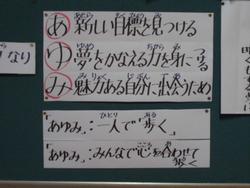 あ 新しい目標を見つける
ゆ 夢をかなえる力を身につける
み 魅力ある自分に出会うため
「あゆみ」:一人で「歩く」
「あゆみ」:みんなで「心を合わせて歩く
なり